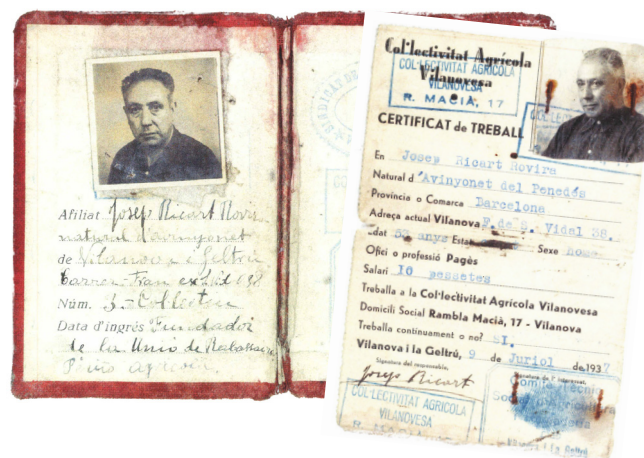 Afiliat Josep Ricart Rovira
natural d'avinyonet
de Vilanova i Geltrú
carrer
Núm. 3 - Collectiu
Data d'ingrés Fundador
de la Unió de Rabassaires
Col·lectivitat Agrícola
Vilanovesa
COL·LECTIVITAT AGRÍCOLA
VILANOVESA
R. MACIÀ, 17
CERTIFICAT de TREBALL
En Josep Ricart Rovira
Natural d'Avinyonet del Penedés
Província o Comarca Barcelona
Adreça actual Vilanova F. de S. Vidal 38.
Edat 53 anys Estat Sexe home
Ofici o professió Pagès
Salari 10 pessetes
Treballa a la Col·lectivitat Agrícola Vilanovesa
Domicili Social Rambla Macià, 17 - Vilanova
Treballa continuament o no? SI.
Vilanova i la Geltrú, 9 de Juriol de 1937
Signatura del responsable,
Signatura de l'interessat,
Josep Ricart
COL·LECTIVITAT AGRÍCOLA
VILANOVESA